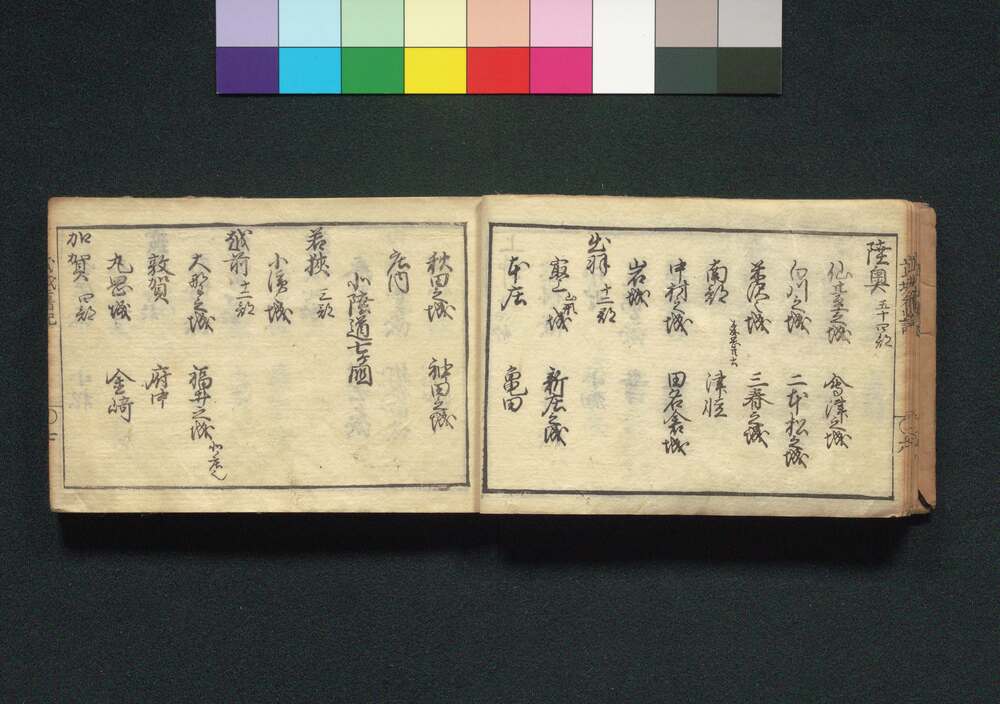 陸奥 五十四郡
仙台之城 会津之城
白川之城 二本松之城
若松之城 三春之城
南部 津軽
中村之城 田名倉城
岩城
出羽 十二郡
最上城 新庄之城
本庄 亀田
秋田之城 神田之城
庄内
北陸道七ヶ国
若狭 三郡
小濱城
越前 十二郡
大野之城 福井之城
敦賀 府中
丸岡城 金崎
加賀 四郡